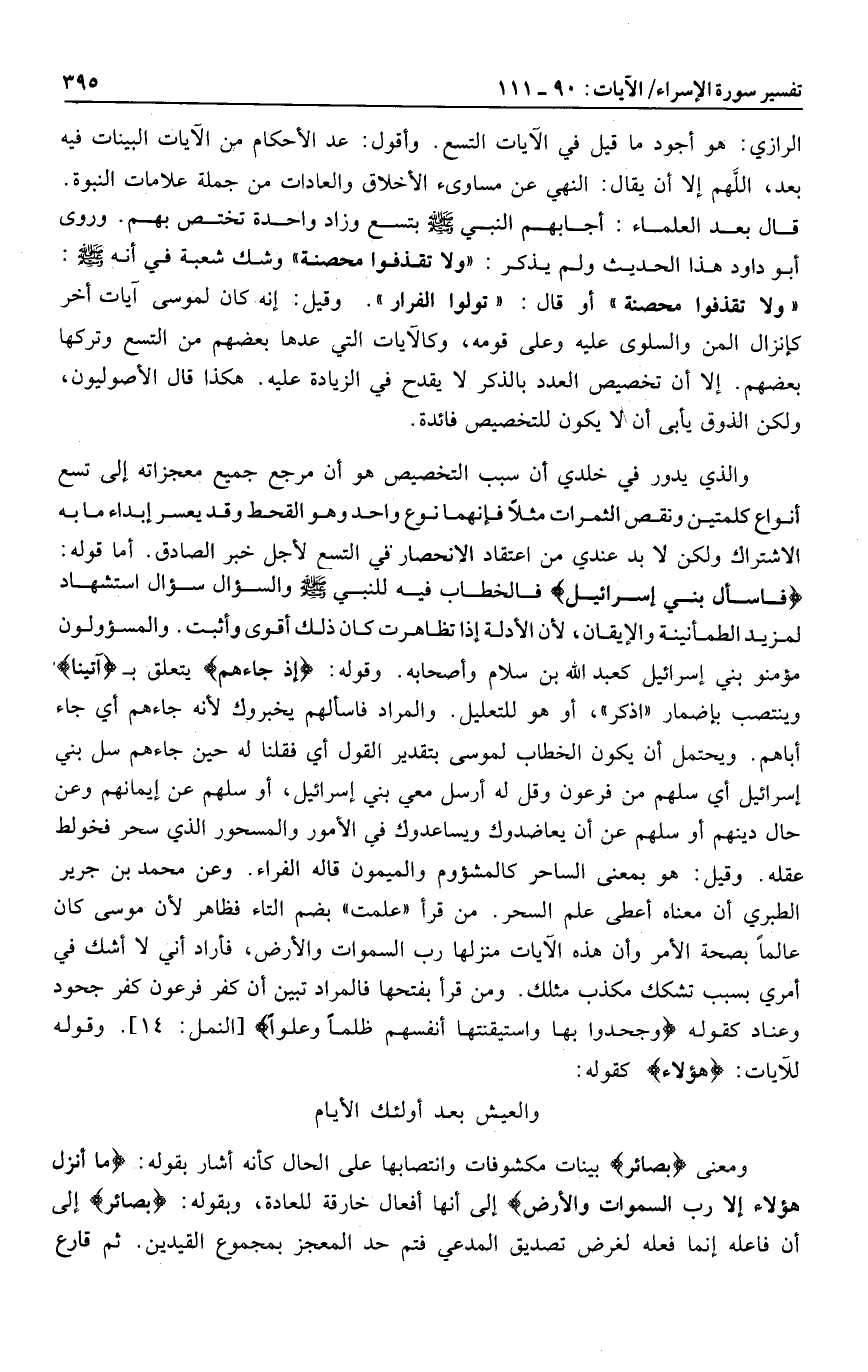 تفسير سورة الإسراء/ الآيات: ٩٠ - ١١١ ٣٩٥
الرازي: هو أجود ما قيل في الآيات التسع. وأقول: عد الأحكام من الآيات البينات فيه
بعد، اللَّهم إلا أن يقال: النهي عن مساوىء الأخلاق والعادات من جملة علامات النبوة.
قال بعد العلماء : أجابهم النبي ﷺ بتسع وزاد واحدة تختص بهم. وروى
أبو داود هذا الحديث ولم يذكر : «ولا تقذفوا محصنة» وشك شعبة في أنه ﷺ :
«ولا تقذفوا محصنة» أو قال : «تولوا الفرار». وقيل: إنه كان لموسى آيات أخر
كإنزال المن والسلوى عليه وعلى قومه، وكالآيات التي عدها بعضهم من التسع وتركها
بعضهم. إلا أن تخصيص العدد بالذكر لا يقدح في الزيادة عليه. هكذا قال الأصوليون،
ولكن الذوق يأبى أن لا يكون للتخصيص فائدة.
والذي يدور في خلدي أن سبب التخصيص هو أن مرجع جميع معجزاته إلى تسع
أنواع كلمتين ونقص الثمرات مثلاً فإنهما نوع واحد وهو القحط وقد يعسر إبداء ما به
الاشتراك ولكن لا بد عندي من اعتقاد الانحصار في التسع لأجل خبر الصادق. أما قوله:
﴿فاسأل بني إسرائيل﴾ فالخطاب فيه للنبي ﷺ والسؤال سؤال استشهاد
لمزيد الطمأنينة والإيقان، لأن الأدلة إذا تظاهرت كان ذلك أقوى وأثبت. والمسؤولون
مؤمنو بني إسرائيل كعبد الله بن سلام وأصحابه. وقوله: ﴿إذ جاءهم﴾ يتعلق بـ ﴿آتينا﴾
وينتصب بإضمار «اذكر»، أو هو للتعليل. والمراد فاسألهم يخبروك لأنه جاءهم أي جاء
أباهم. ويحتمل أن يكون الخطاب لموسى بتقدير القول أي فقلنا له حين جاءهم سل بني
إسرائيل أي سلهم من فرعون وقل له أرسل معي بني إسرائيل، أو سلهم عن إيمانهم وعن
حال دينهم أو سلهم عن أن يعاضدوك ويساعدوك في الأمور والمسحور الذي سحر فخولط
عقله. وقيل: هو بمعنى الساحر كالمشؤوم والميمون قاله الفراء. وعن محمد بن جرير
الطبري أن معناه أعطى علم السحر. من قرأ «علمت» بضم التاء فظاهر لأن موسى كان
عالماً بصحة الأمر وأن هذه الآيات منزلها رب السموات والأرض، فأراد أني لا أشك في
أمري بسبب تشكك مكذب مثلك. ومن قرأ بفتحها فالمراد تبين أن كفر فرعون كفر جحود
وعناد كقوله ﴿وجحدوا بها واستيقنتها أنفسهم ظلماً وعلواً﴾ [النمل: ١٤]. وقوله
للآيات: ﴿هؤلاء﴾ كقوله:
والعيش بعد أولئك الأيام
ومعنى ﴿بصائر﴾ بينات مكشوفات وانتصابها على الحال كأنه أشار بقوله: ﴿ما أنزل
هؤلاء إلا رب السموات والأرض﴾ إلى أنها أفعال خارقة للعادة، وبقوله: ﴿بصائر﴾ إلى
أن فاعله إنما فعله لغرض تصديق المدعي فتم حد المعجز بمجموع القيدين. ثم قارع